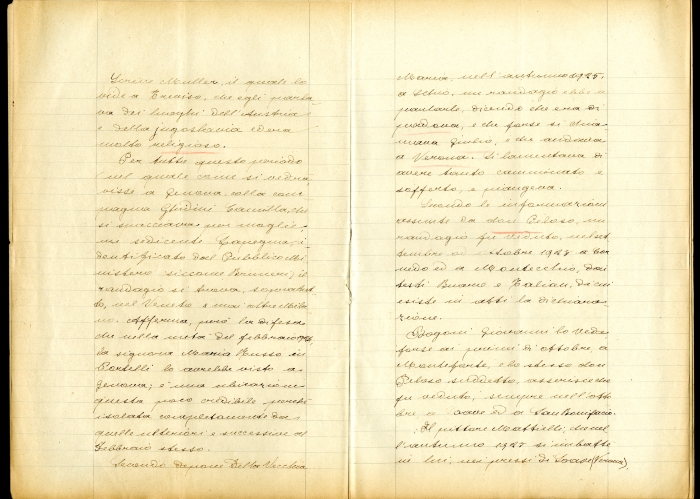 Scrive Muller, il quale lo
vide a Treviso, che egli parla
va dei luoghi dell'Austria
e della Jugoslavia ed era
molto religioso.
Per tutto questo periodo
nel quale come si vedrà,
visse a Genova colla com
pagna Ghidini Camilla, che
si spacciava per moglie,
un sedicente Capegna, i
dentificato dal Pubblico Mi
nistero siccome Bruneri; il
randagio si trova, soprattut
to, nel Veneto e mai oltre Mila
no. Afferma, però la difesa
che nella metà del febbraio 1926
la signora Maria Russo in
Portelli lo avrebbe visto a
Genova; è una ubicazione
questa poco credibile perchè
isolata completamente da
quelle ulteriori e successive al
febbraio stesso.
Secondo depone Della Vecchia
Maria, nell'autunno 1925
a Schio, un randagio ebbe a
parlarle, dicendo che era di
Padova, e che forse si chia
mava Giulio, e che andava
a Verona. Si lamentava di
avere tanto camminato e
sofferto, e piangeva.
Secondo le informazioni
assunte da don Peloso, un
randagio fu veduto, nel set
tembre od ottobre 1925 a
ed a Montecchio, dai
testi Buono e Italian, di cui
esiste in atti la dichiara
zione.
Bogoni Giovanni lo vede
forse ai primi di ottobre, a
Monteforte, e lo stesso don
Peloso suddetto, asserisce che
fu veduto, sempre nell'otto
bre a Soave ed a San Bonifacio.
Il pittore Mattielli, che nel
l'autunno 1925 si imbatte
in lui, nei pressi di Soave (Verona),